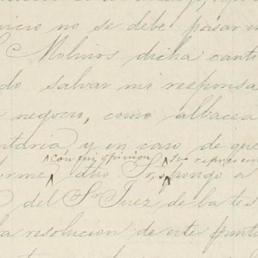 nicio no se debe pasar en
S. Molinos dicha canti
do salvar mi responsa
negocio, como albacea
ntaria, y en caso de que
con mi opinion,
orme dho
pongo a
del Sr. Juez de
la resolucion de este punto